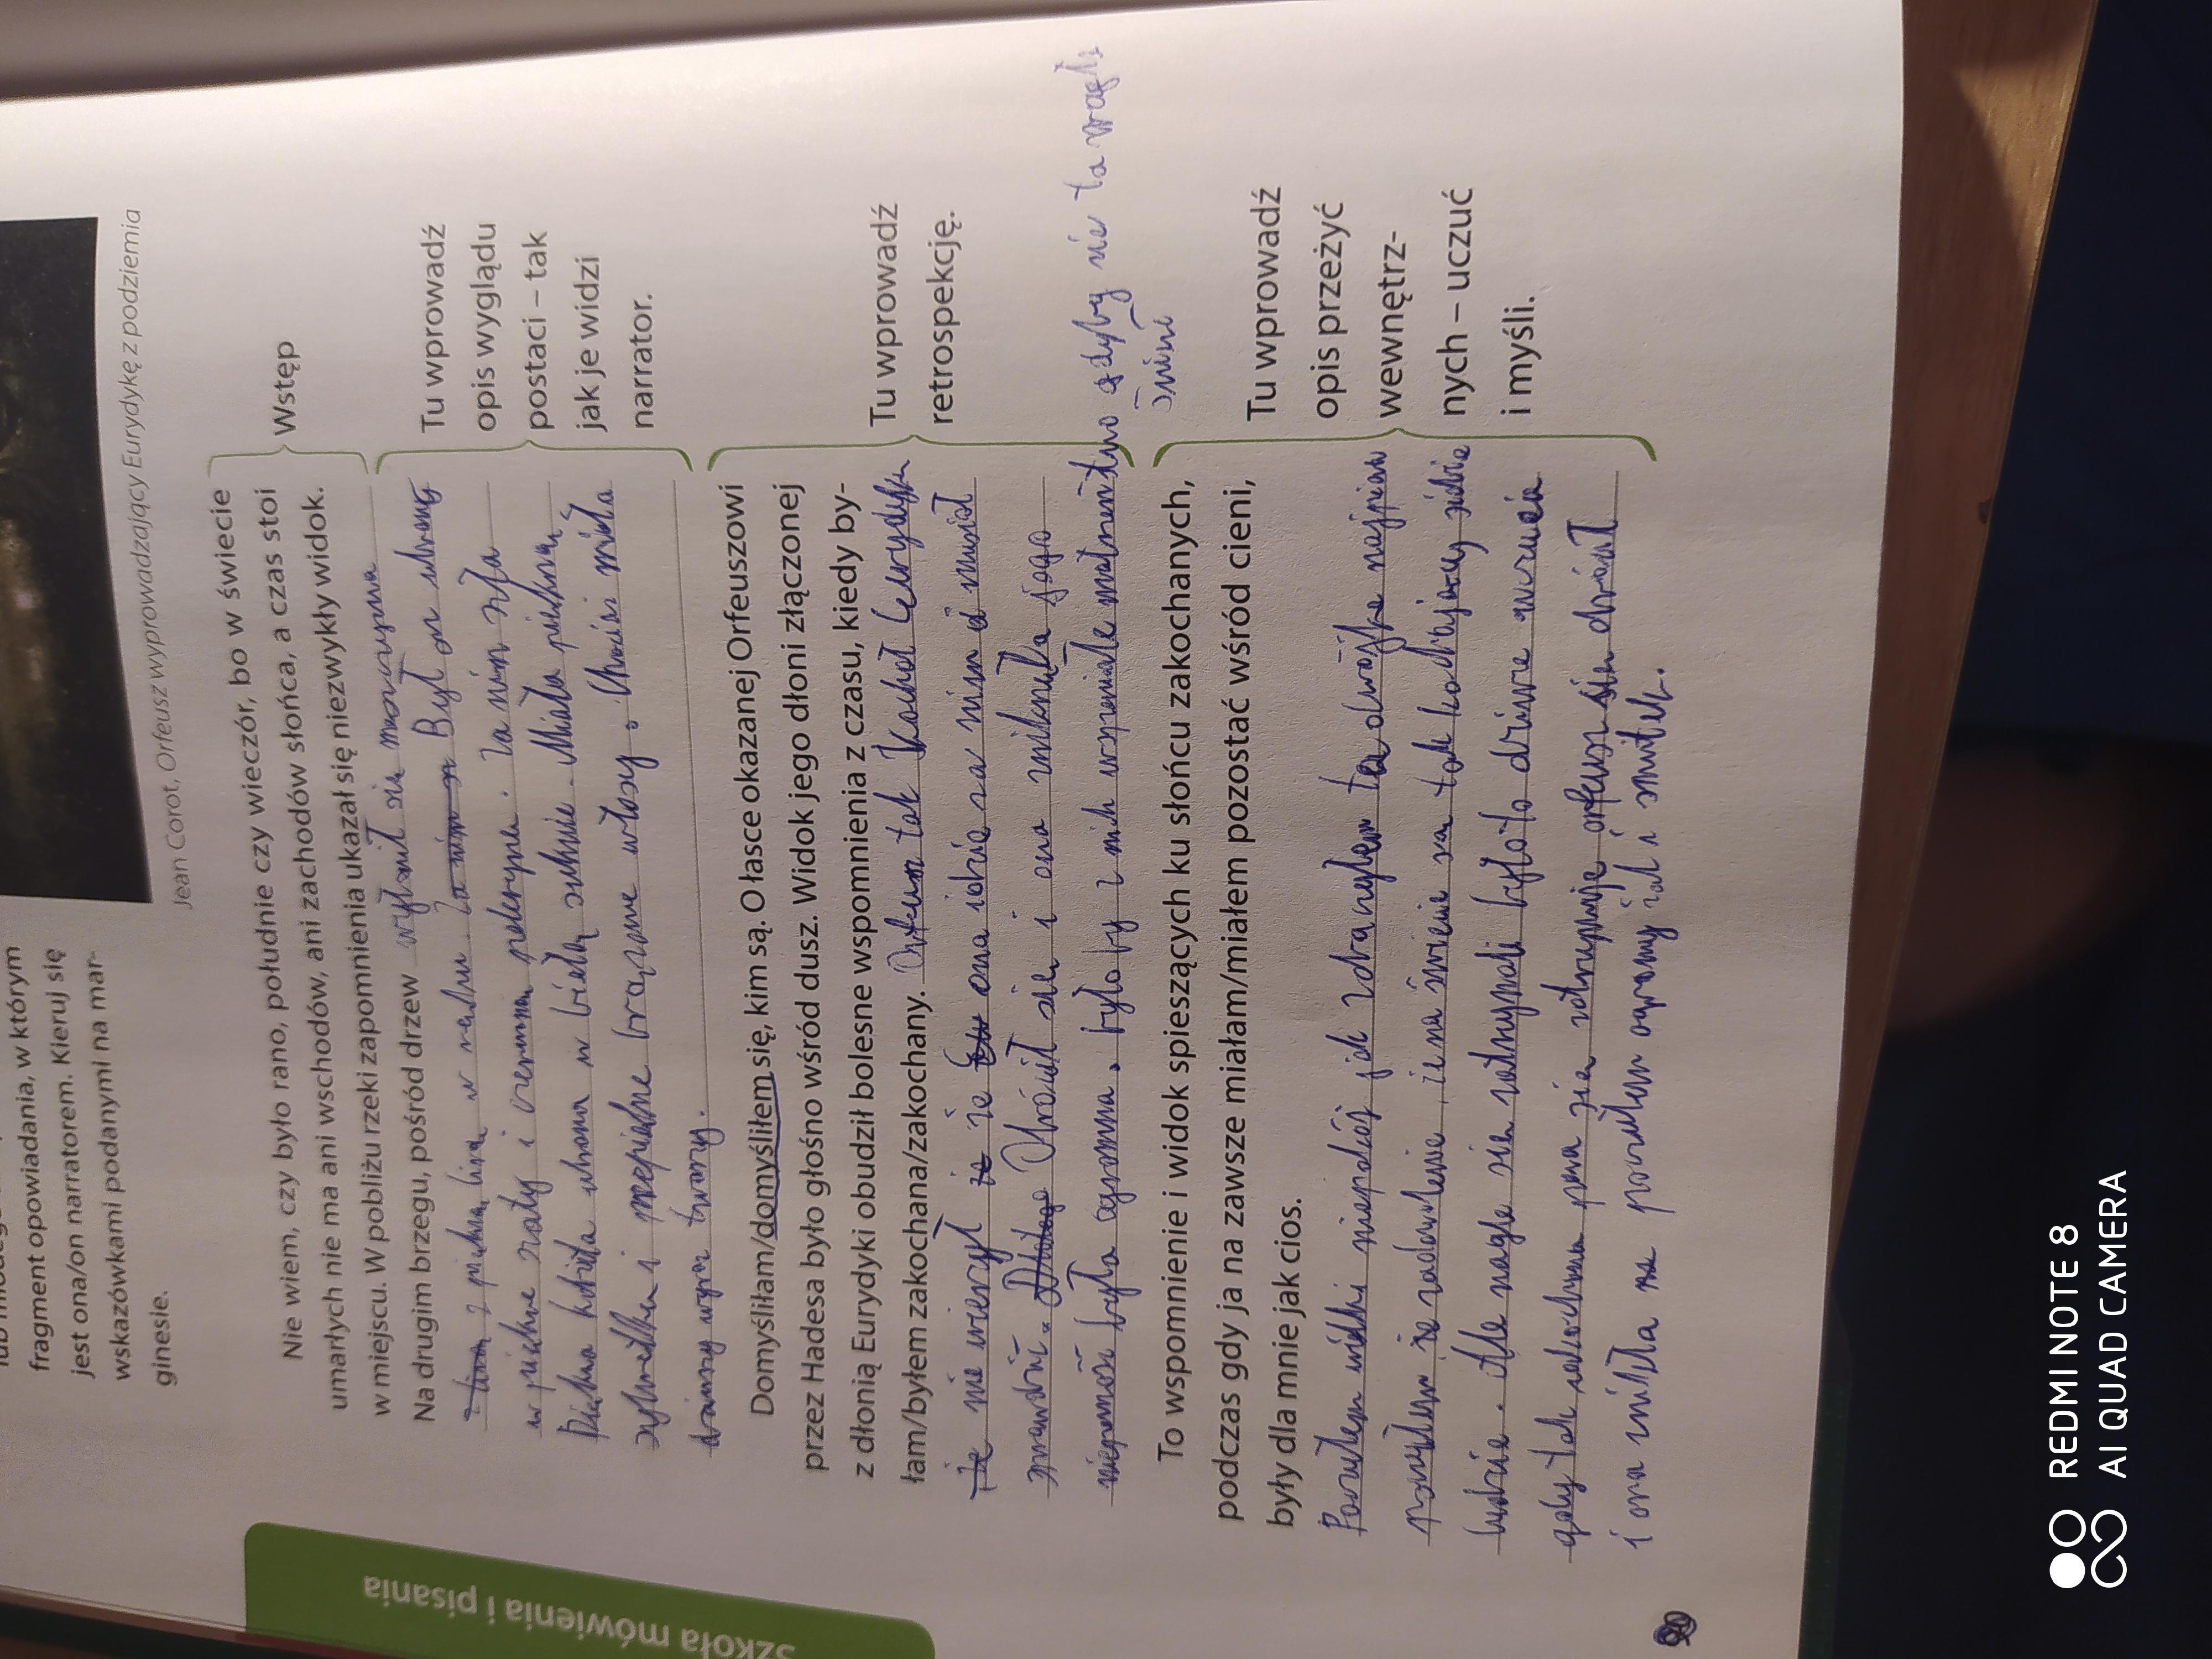 fragment opowiadania, w którym
jest ona/on narratorem. Kieruj się
wskazówkami podanymi na mar-
ginesie.
Jean Corot, Orfeusz wyprowadzający Eurydykę z podziemia
Nie wiem, czy było rano, południe czy wieczór, bo w świecie
umarłych nie ma ani wschodów, ani zachodów słońca, a czas stoi
w miejscu. W pobliżu rzeki zapomnienia ukazał się niezwykły widok.
Na drugim brzegu, pośród drzew wyłonił się
z piękną lirą w ręku. Był on ubrany
w piękne szaty i czerwoną pelerynę. Za nim szła
Piękna kobieta ubrana w białą suknię. Miała piękną
sylwetkę i przepiękne brązowe włosy. Chociaż miała
wyraz twarzy.
Wstęp
Tu wprowadź
opis wyglądu
postaci – tak
jak je widzi
narrator.
Domyśliłam/domyśliłem się, kim są. O łasce okazanej Orfeuszowi
przez Hadesa było głośno wśród dusz. Widok jego dłoni złączonej
z dłonią Eurydyki obudził bolesne wspomnienia z czasu, kiedy by-
łam/byłem zakochana/zakochany. tak kochał Eurydykę
że nie wierzył że ona idzie za nim i musiał
sprawdzić. Obrócił się i ona zniknęła jego
była ogromna. było by z nich wspaniałe małżeństwo gdyby nie ta
śmierć
Tu wprowadź
retrospekcję.
To wspomnienie i widok spieszących ku słońcu zakochanych,
podczas gdy ja na zawsze miałam/miałem pozostać wśród cieni,
były dla mnie jak cios.
Poczułem wielki niepokój jak zobaczyłem tą dwójkę najpierw
poczułem zadowolenie, że na świecie są tak kochający siebie
ludzie. Ale nagle się zatrzymali było to dziwne uczucie
gdy tak zakochana para się zatrzymuje orfeusz
i ona znikła poczułem ogromny żal i smutek.
Tu wprowadź
opis przeżyć
wewnętrz-
nych – uczuć
i myśli.
Szkoła mówienia i pisania
REDMI NOTE 8
AI QUAD CAMERA